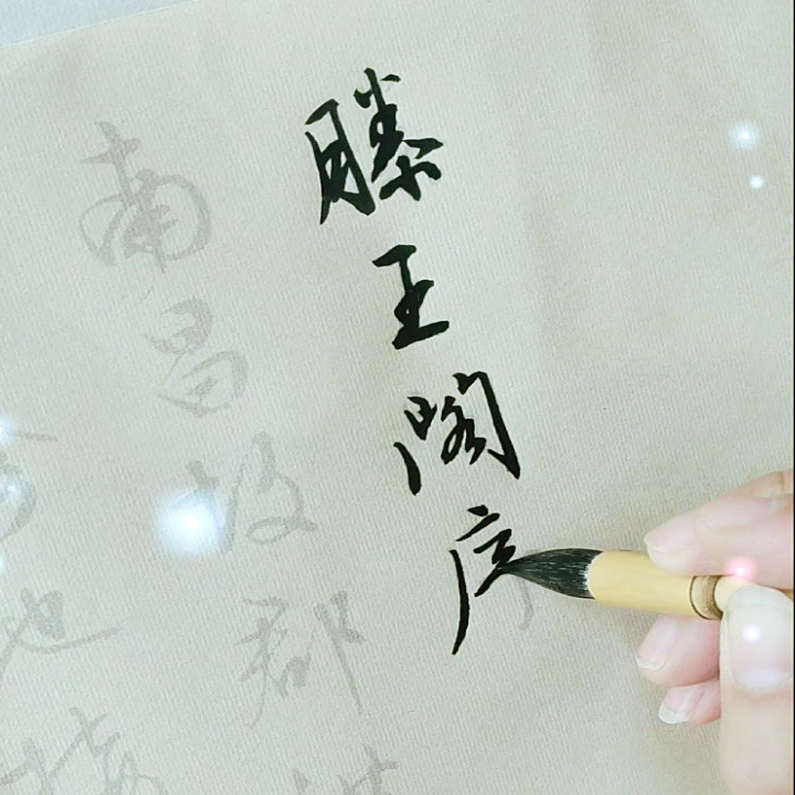 滕王閣序
南昌故郡洪